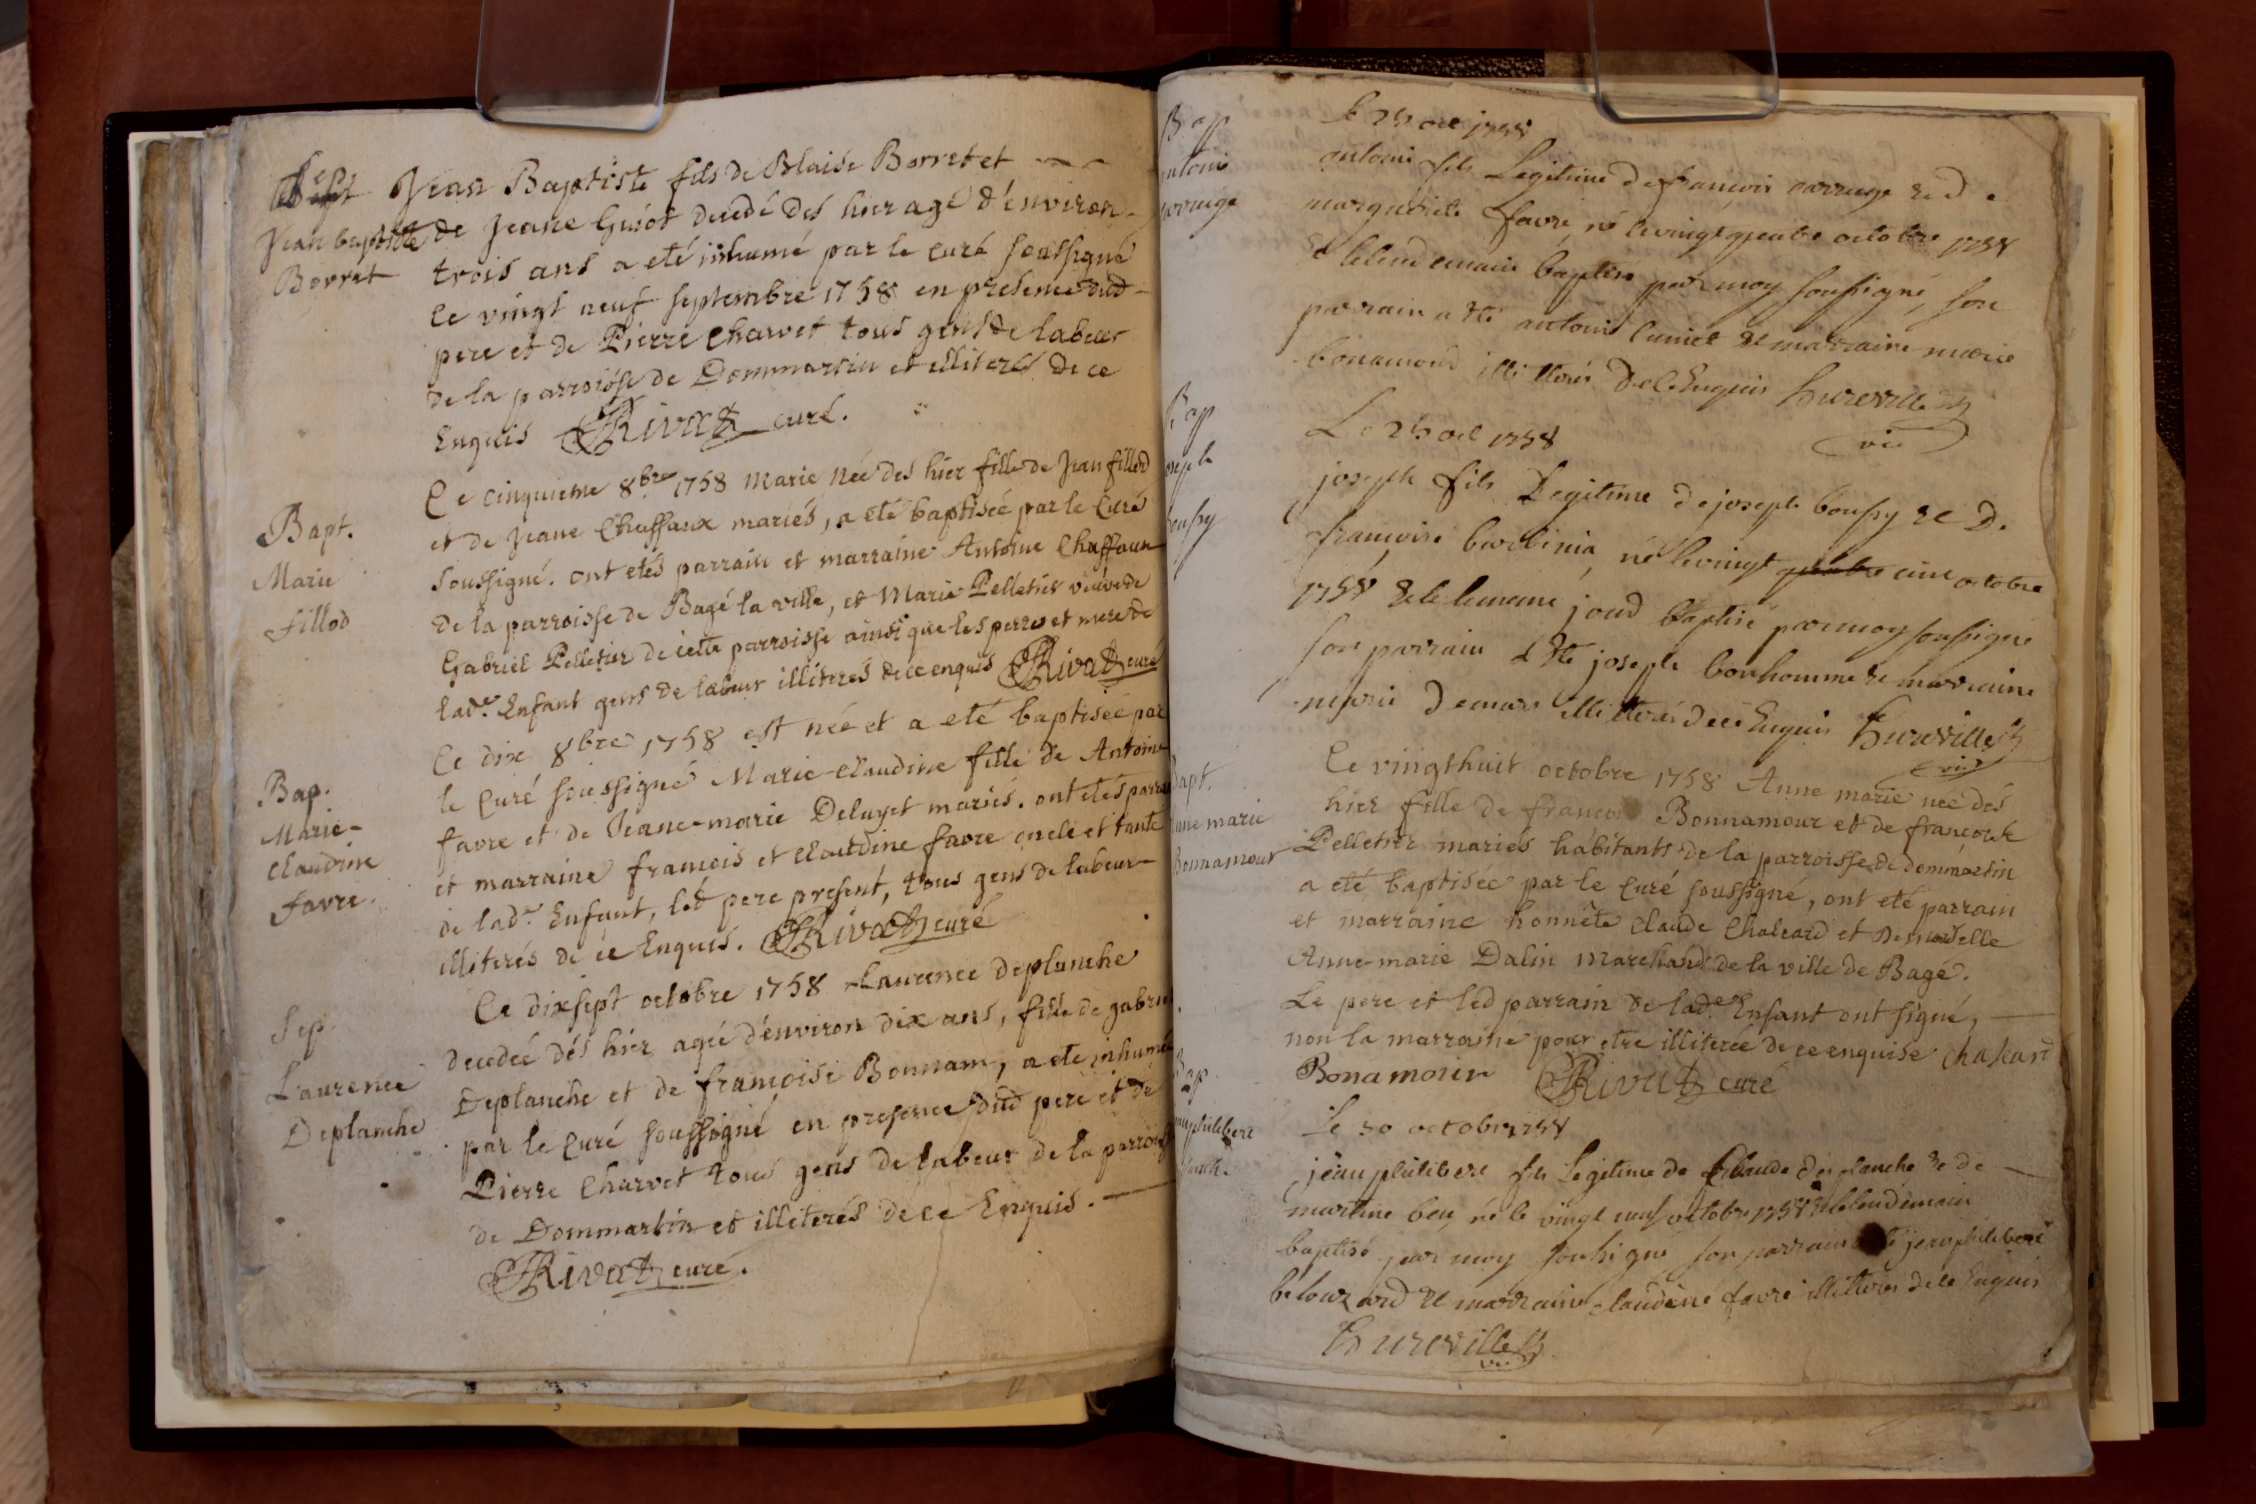 Sep
Jean baptiste
Borret
Jean Baptiste fils de Blaise Borret et
de Jeane Guiot decedé des hier agé d'environ
trois ans a eté inhumé par le curé soussigné
le vingt neuf septembre 1758 en presence dud
pere et de Pierre Charvet tous gens de labeur
de la parroisse de Dommartin et illiterés de ce
Enquis Rivat curé.
Bapt.
Marie
fillod
Le cinquieme 8bre 1758 Marie Née des hier fille de Jean fillod
et de Jeane Chaffaux mariés, a eté baptisée par le Curé
soussigné. ont etés parrain et marraine Antoine Chaffaux
de la parroisse de Bagé la ville, et Marie Pelletier veuve de
Gabriel Pelletier de cette parroisse ainsi que les peres et mere de
lad.e Enfant gens de labeur illiterés de ce enquis Rivat curé
Bap.
Marie-
Claudine
favre.
Le dix 8bre 1758 est née et a eté baptisée par
le Curé soussigné Marie-claudine fille de Antoine
favre et de Jeane-marie Deluyet mariés. ont etés parra
et marraine francois et claudine favre oncle et tante
de lad.e Enfant, led pere present, tous gens de labeur
illiterés de ce Enquis. Rivat curé
Sep.
Laurence
Deplanche
Le dixsept octobre 1758 Laurence Deplanche
decedée dés hier agée d'environ dix ans, fille de gabri
Deplanche et de francoise Bonnam, a eté inhumé
par le Curé soussigné en presence dud pere et de
Pierre Charvet tous gens de labeur de la parrois
de Dommartin et illiterés de ce Enquis.
Rivat curé.
Bap
antoine
Le 25 oct 1758
antoine fils Legitime de françois et de
marguerite favre, né le vingt quatre octobre 1758
& le lendemain baptisé par moy soussigné, son
parrain a eté antoine & marraine marie
bonamour illitterés de ce Enquis hureville
vic
Bap
joseph
boussy
Le 25 oct 1758
joseph fils Legitime de joseph boussy & D.
françoise né le vingt quatre cinc octobre
1758 & le meme jour baptisé par moy soussigné
son parrain a eté joseph bonhomme & marraine
marie demars illitterés de ce Enquis hureville
vic
Bapt.
anne marie
Bonnamour
Le vingthuit octobre 1758 Anne marie née des
hier fille de francois Bonnamour et de francoise
Pelletier mariés habitants de la parroisse de dommartin
a eté baptisée par le curé soussigné, ont eté parrain
et marraine honnête Claude Chaleard et Demoiselle
Anne-marie Dalin Marchands de la ville de Bagé.
Le pere et led parrain de lad.e Enfant ont signé,
non la marraine pour etre illiterée de ce enquise
Bonamour Rivat curé
Bap
philibert
Le 30 octobre 1758
jean philibert fils Legitime de Claude des planche & de
martine né le vingt neuf octobre 1758 & le lendemain
baptisé par moy soussigné son parrain eté jean philibert
& marraine claudine favre illitterés de ce Enquis
hureville
vic